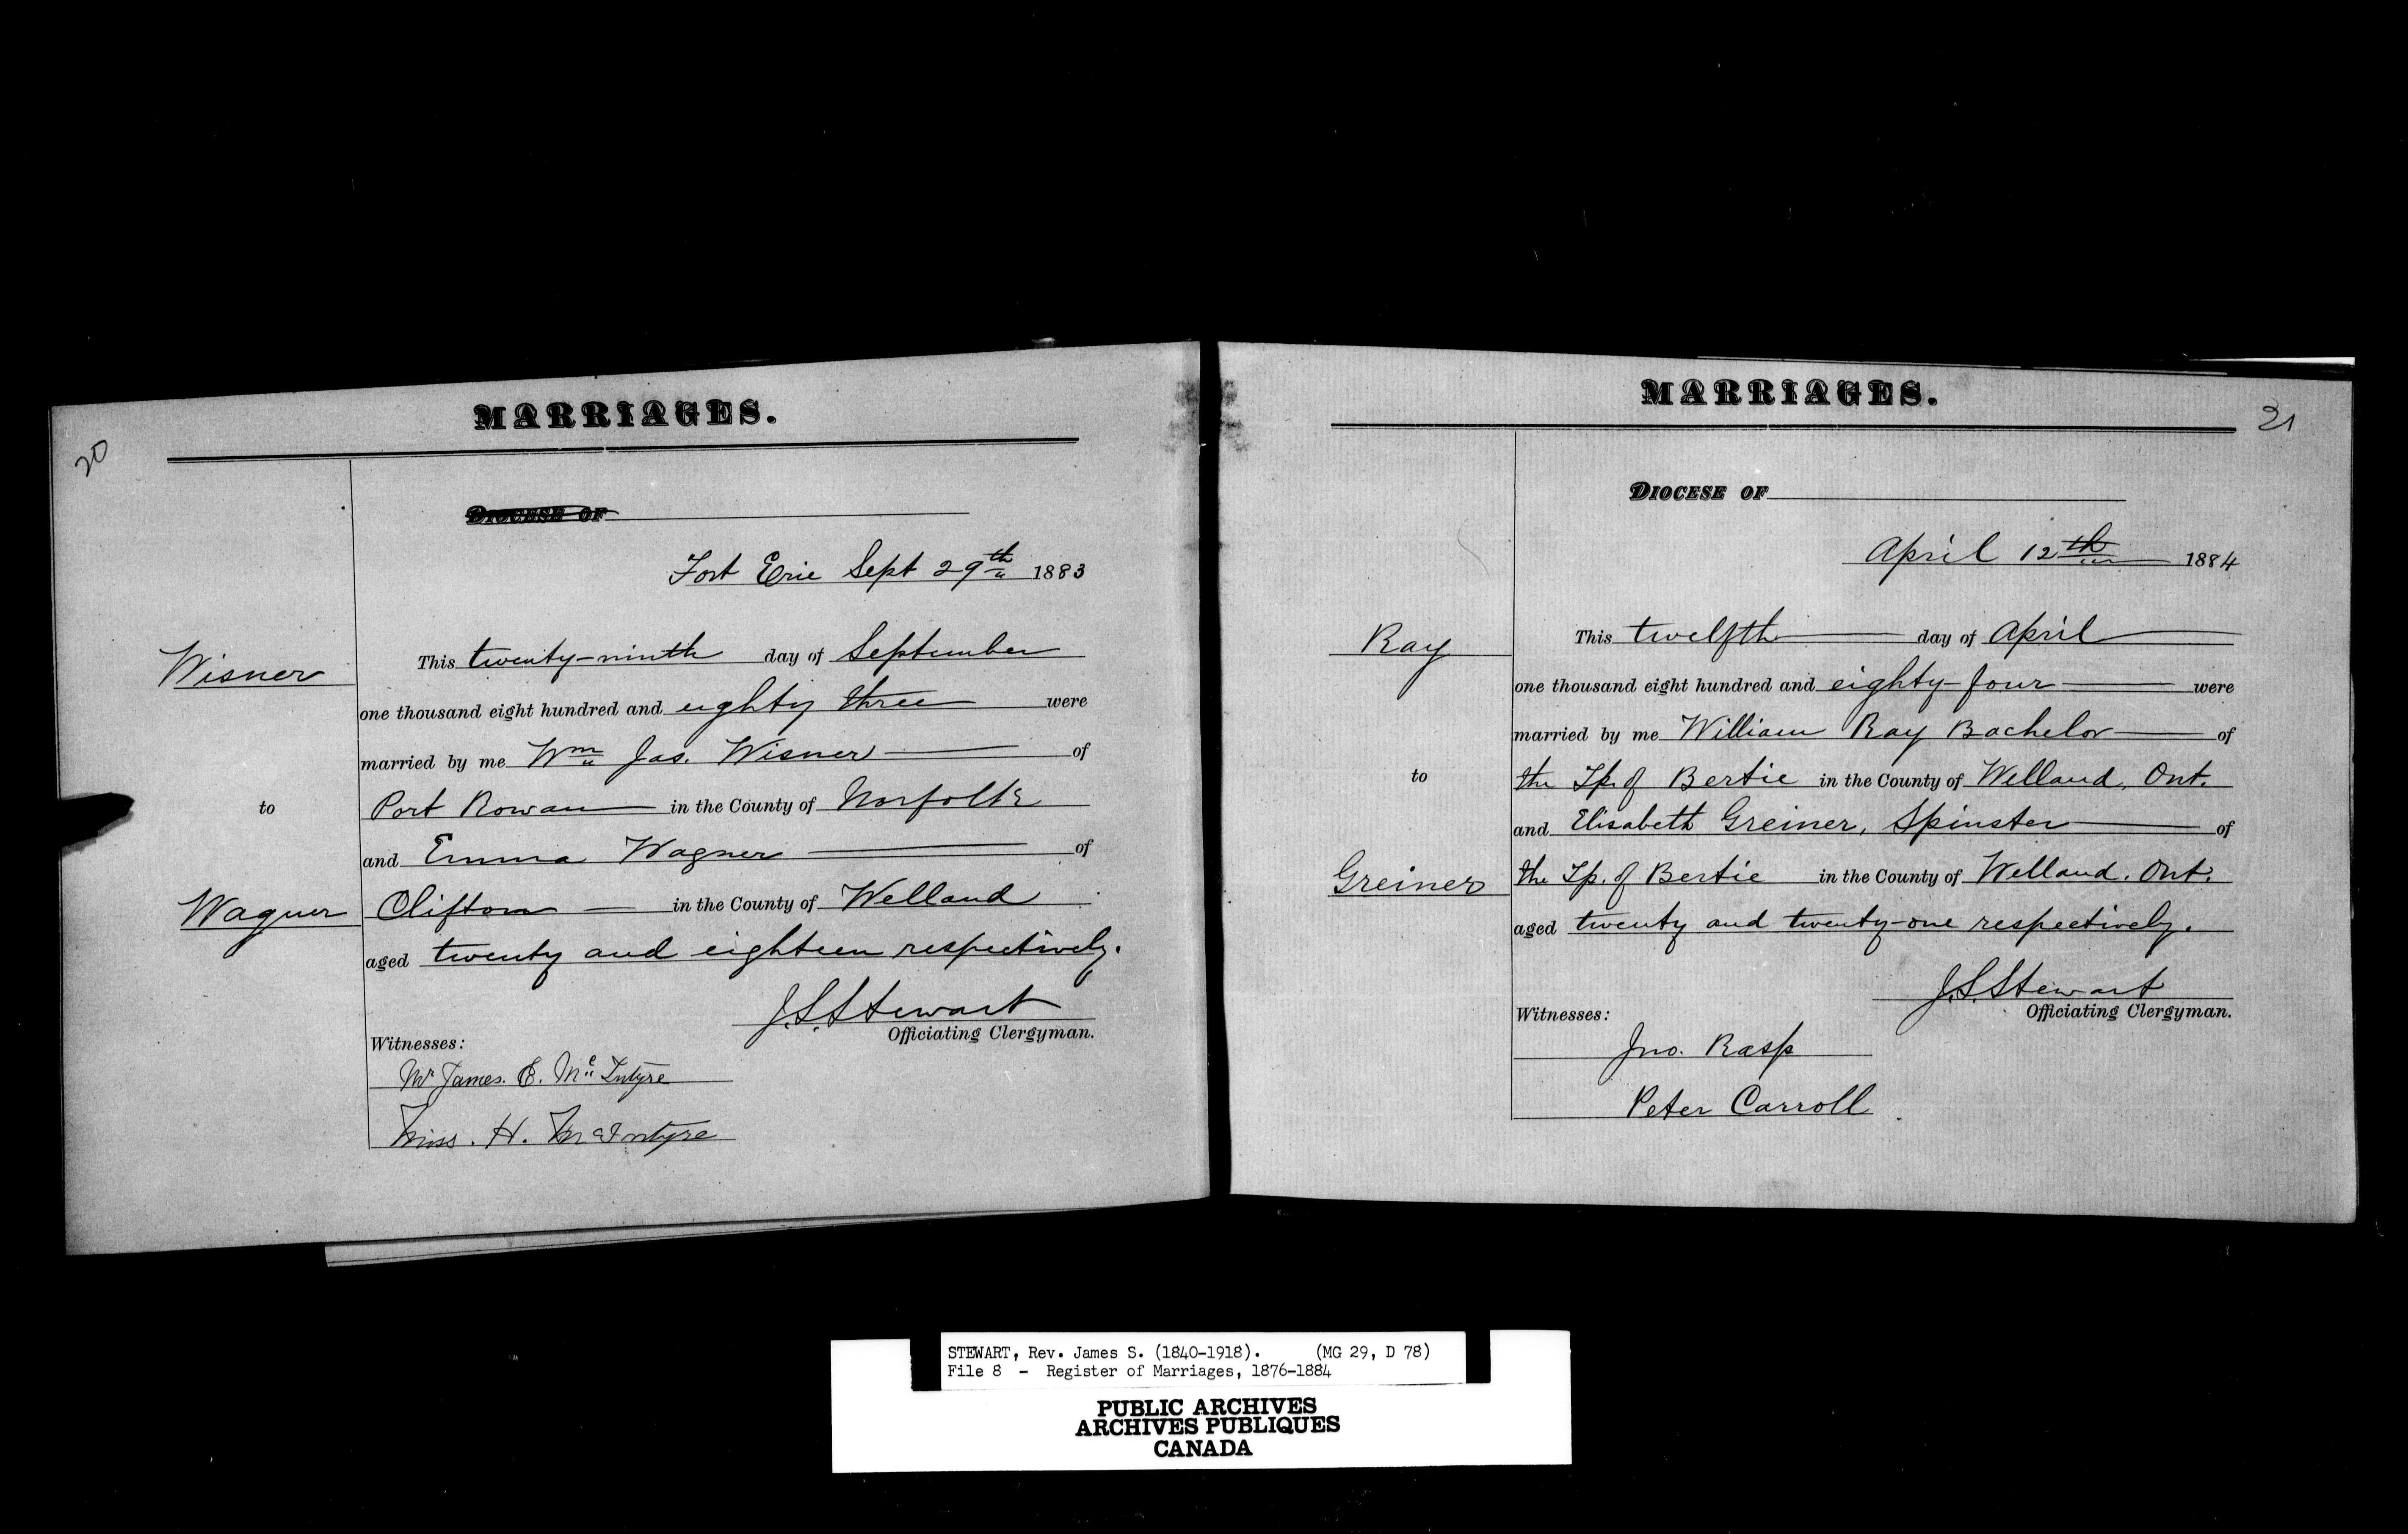 MARRIAGES.
20
DIOCESE OF
Fort Erie Sept 29th 1883
Wisner
This twenty-ninth day of September
one thousand eight hundred and eighty three were
married by me Wm Jas. Wisner of
to
Port Rowan in the County of Norfolk
and Emma Wagner of
Wagner
Clifton in the County of Welland
aged twenty and eighteen respectively.
J.S. Stewart
Officiating Clergyman.
Witnesses:
Mr James. E. Mc Intyre
Miss. H. McIntyre
MARRIAGES.
21
DIOCESE OF
April 12th 1884
Ray
This twelfth day of April
one thousand eight hundred and eighty-four were
married by me William Ray Bachelor of
to
the Tp. of Bertie in the County of Welland, Ont.
and Elisabeth Greiner, Spinster of
Greiner
the Tp. of Bertie in the County of Welland. Ont.
aged twenty and twenty-one respectively.
J.S. Stewart
Officiating Clergyman.
Witnesses:
Jno. Rasp
Peter Carroll
STEWART, Rev. James S. (1840-1918). (MG 29, D 78)
File 8 - Register of Marriages, 1876-1884
PUBLIC ARCHIVES
ARCHIVES PUBLIQUES
CANADA